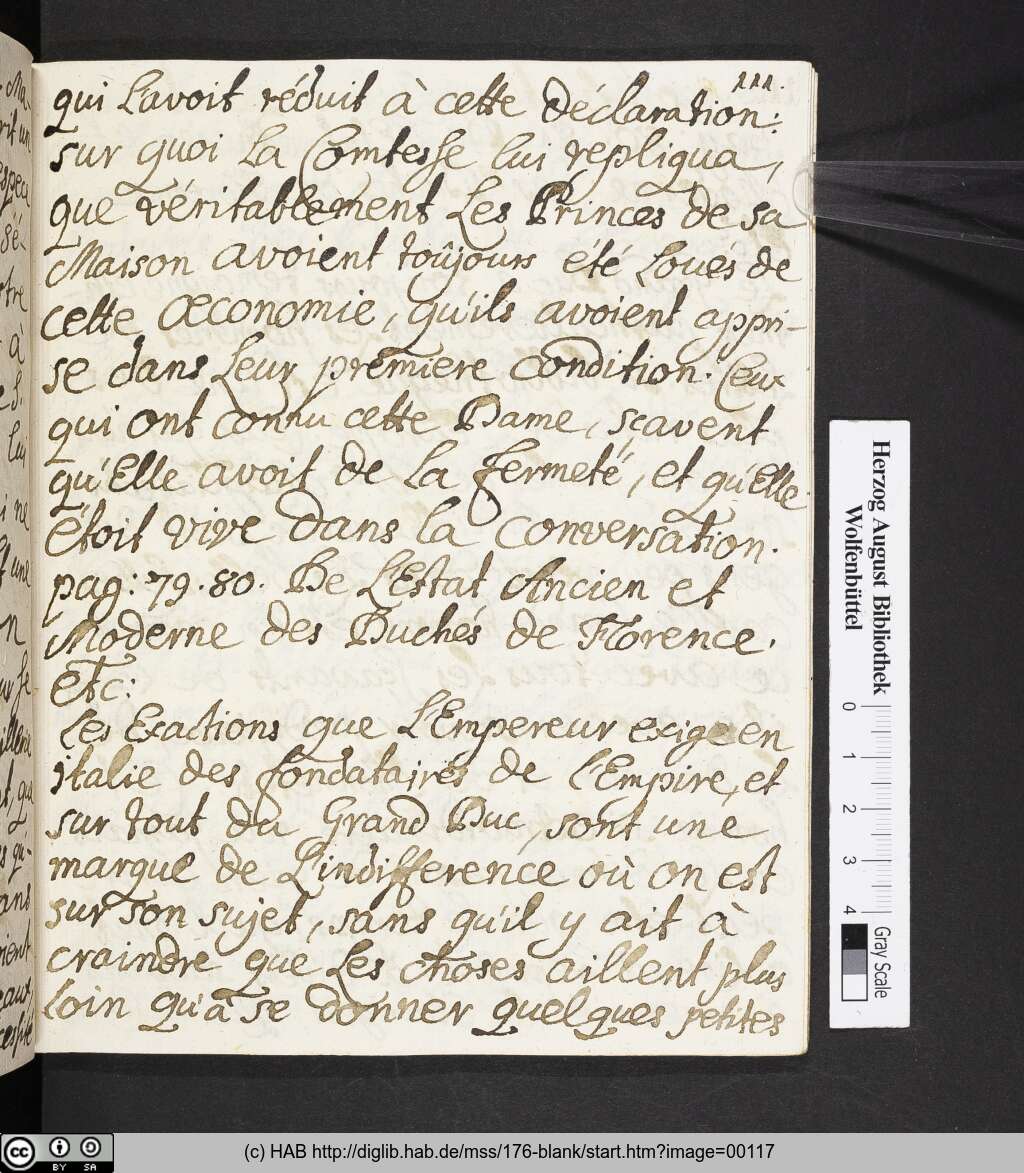 111.
qui L'avoit réduit à cette Déclaration:
sur quoi La Comtesse lui repliqua,
que véritablement Les Princes de sa
Maison avoient toûjours été Loués de
cette Œconomie, qu'ils avoient appri-
se dans Leur premiere condition. Ceux
qui ont connu cette Dame, sçavent
qu'Elle avoit de La fermeté, et qu'Elle
étoit vive dans la conversation.
pag: 79. 80. De L'Estat Ancien et
Moderne des Duchés de Florence.
etc:
Les Exactions que L'Empereur exige en
italie des fondataires de l'Empire, et
sur tout du Grand Duc, sont une
marque de L'indifference où on est
sur son sujet, sans qu'il y ait à
craindre que Les choses aillent plus
loin qu'à se donner quelques petites
Herzog August Bibliothek
Wolfenbüttel
0 1 2 3 4
Gray Scale
(c) HAB http://diglib.hab.de/mss/176-blank/start.htm?image=00117
cc BY SA